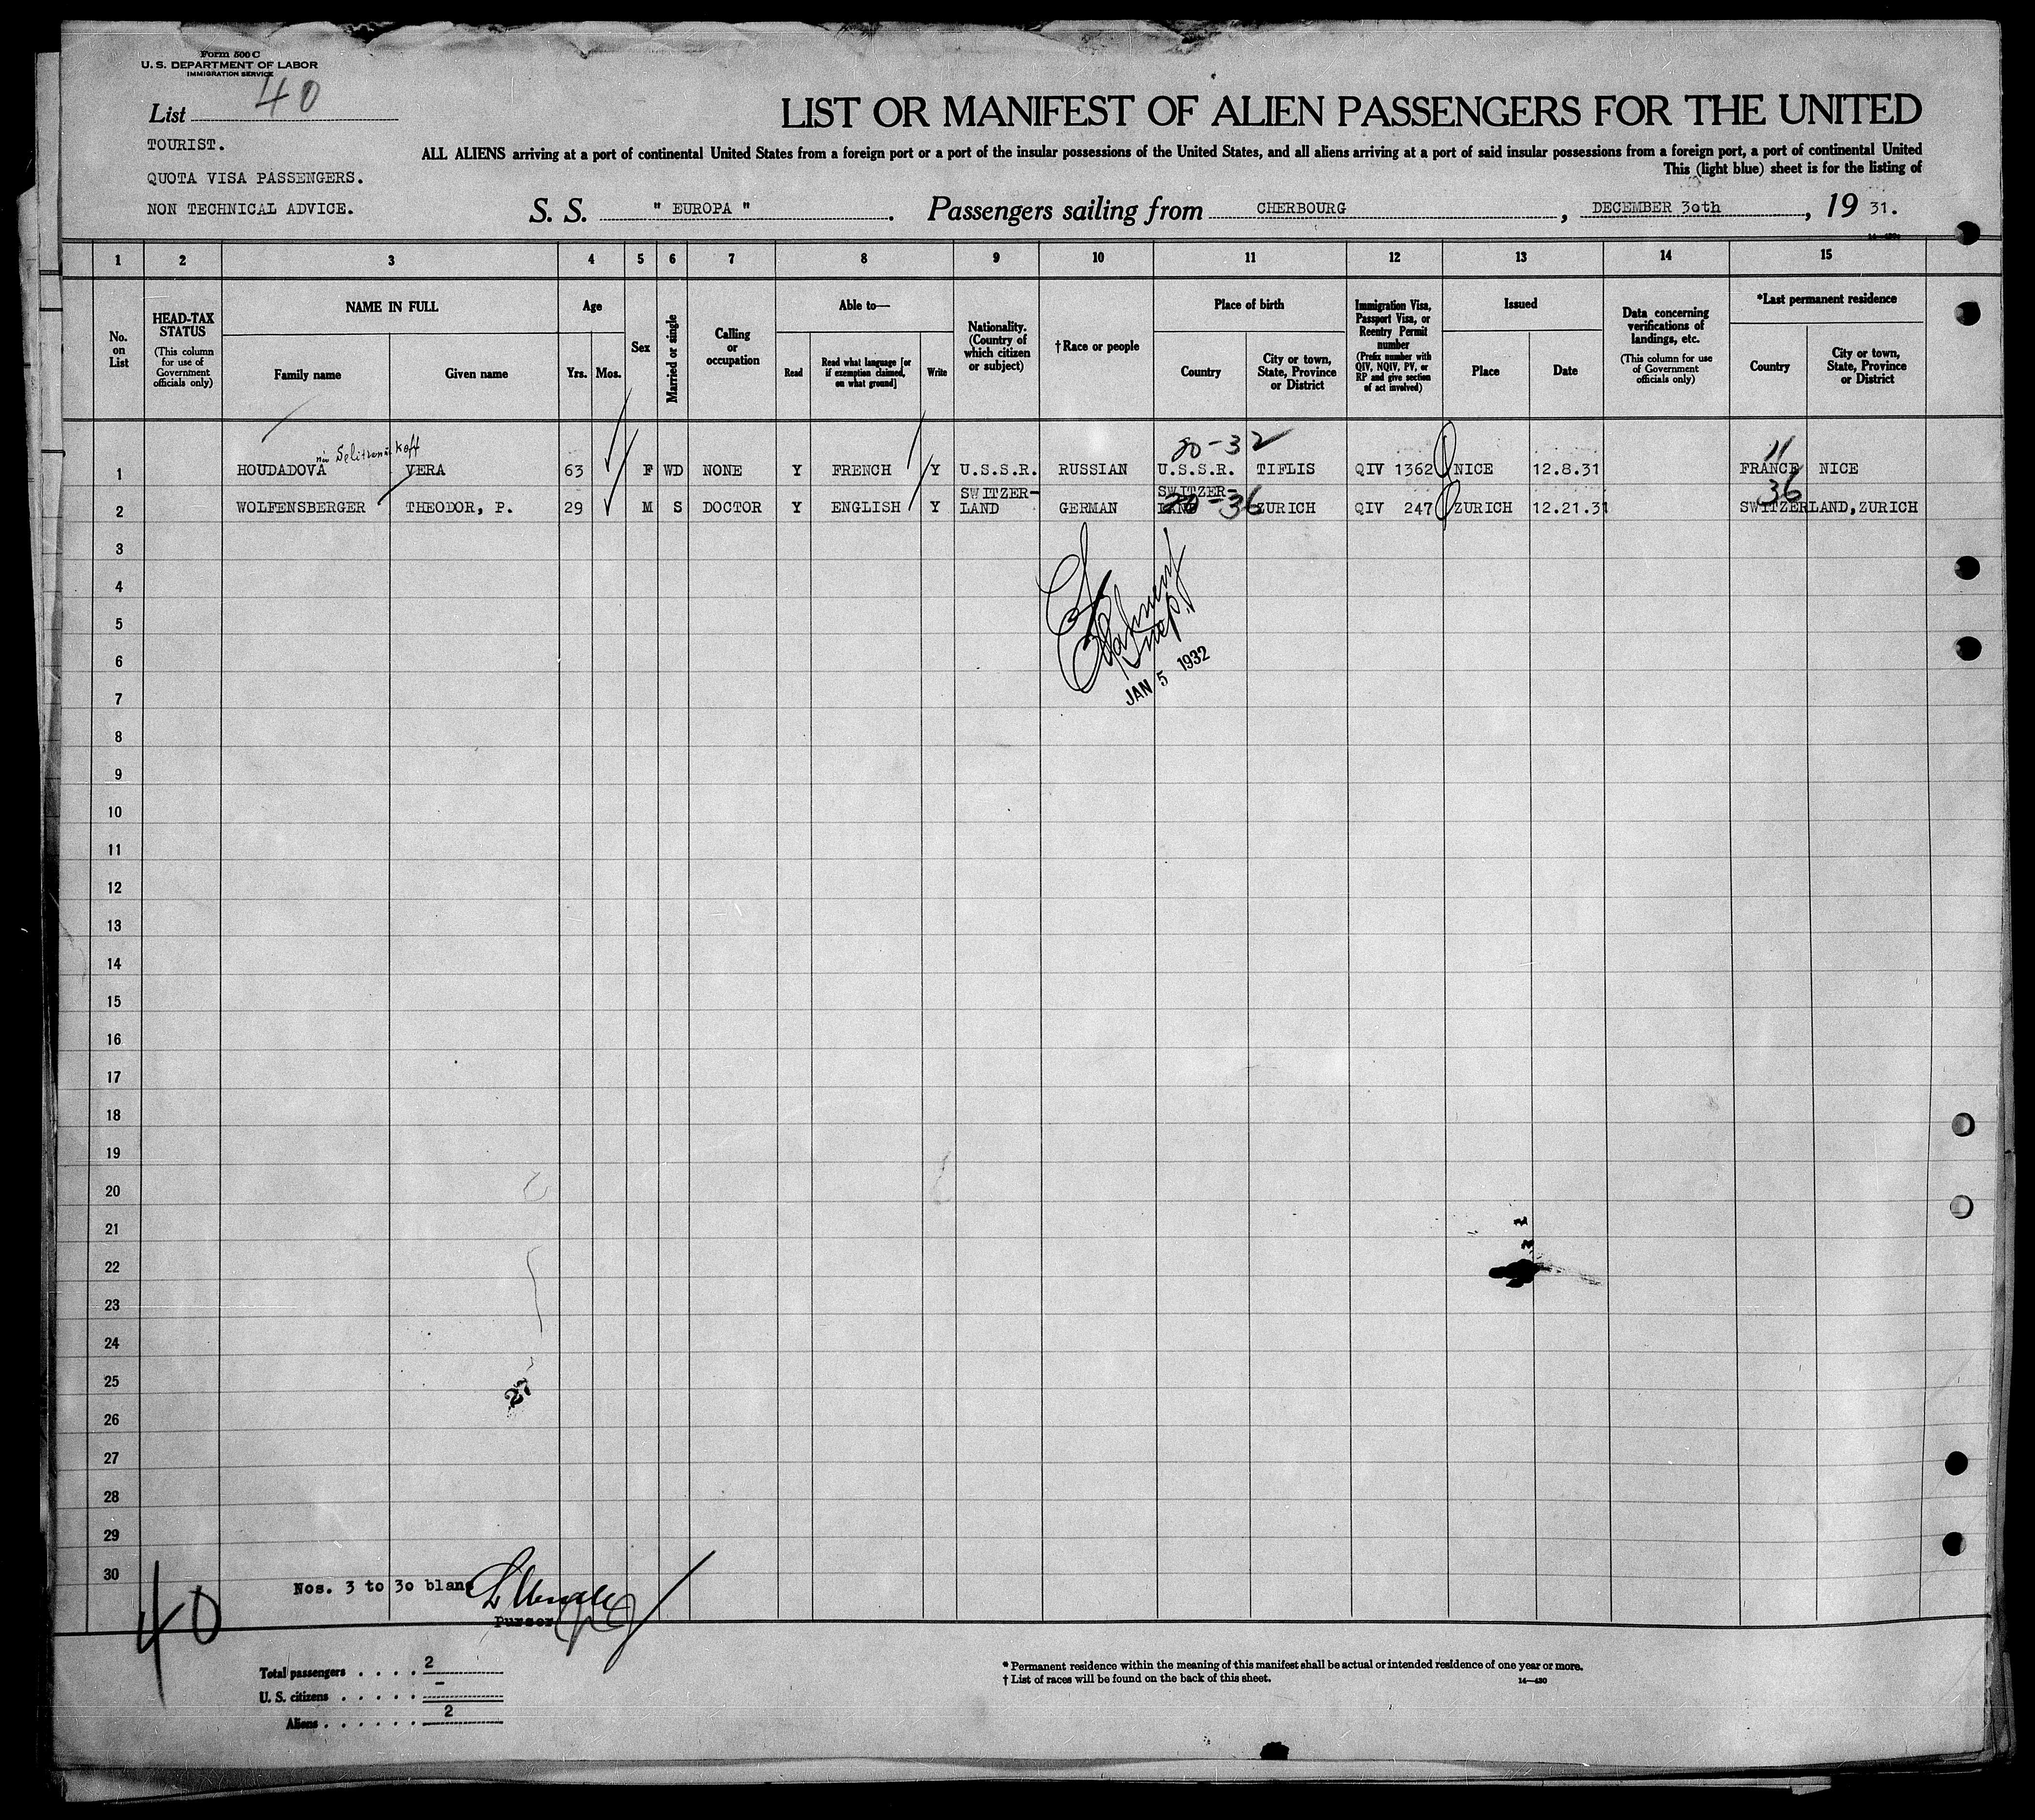 Form 500 C
U. S. DEPARTMENT OF LABOR
IMMIGRATION SERVICE
List 40
LIST OR MANIFEST OF ALIEN PASSENGERS FOR THE UNITED
TOURIST.
ALL ALIENS arriving at a port of continental United States from a foreign port or a port of the insular possessions of the United States, and all aliens arriving at a port of said insular possessions from a foreign port, a port of continental United
This (light blue) sheet is for the listing of
QUOTA VISA PASSENGERS.
NON TECHNICAL ADVICE.
S. S. " EUROPA ". Passengers sailing from CHERBOURG, DECEMBER 30th, 19 31.
1 2 3 4 5 6 7 8 9 10 11 12 13 14 15
No. on List
HEAD-TAX STATUS
(This column for use of Government officials only)
NAME IN FULL
Family name
Given name
Age
Yrs. Mos.
Sex
Married or single
Calling or occupation
Able to—
Read
Read what language [or if exemption claimed, on what ground]
Write
Nationality. (Country of which citizen or subject)
†Race or people
Place of birth
Country
City or town, State, Province or District
Immigration Visa, Passport Visa, or Reentry Permit number
(Prefix number with QIV, NQIV, PV, or RP and give section of act involved)
Issued
Place
Date
Data concerning verifications of landings, etc.
(This column for use of Government officials only)
*Last permanent residence
Country
City or town, State, Province or District
20-32 11
1 HOUDADOVA VERA 63 F WD NONE Y FRENCH Y U.S.S.R. RUSSIAN U.S.S.R. TIFLIS QIV 1362 NICE 12.8.31 FRANCE NICE
SWITZER- SWITZER- 36
2 WOLFENSBERGER THEODOR, P. 29 M S DOCTOR Y ENGLISH Y LAND GERMAN LAND 20-36 ZURICH QIV 247 ZURICH 12.21.31 SWITZERLAND, ZURICH
3
4
5
6
JAN 5 1932
7
8
9
10
11
12
13
14
15
16
17
18
19
20
21
22
23
24
25
27
26
27
28
29
30
Nos. 3 to 30 blanc
Purser
40
Total passengers . . . . 2
U. S. citizens . . . . . -
Aliens . . . . . . 2
* Permanent residence within the meaning of this manifest shall be actual or intended residence of one year or more.
† List of races will be found on the back of this sheet. 14—430